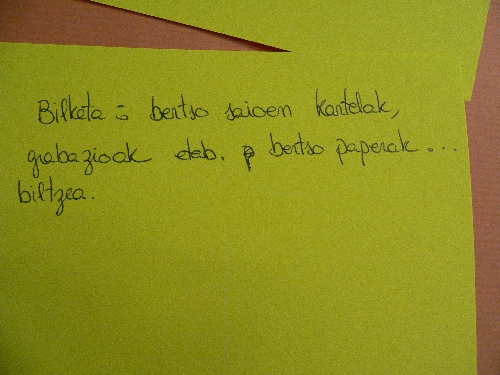 Bilketa: bertso saioen kartelak,
grabazioak etab. bertso paperak...
biltzea.